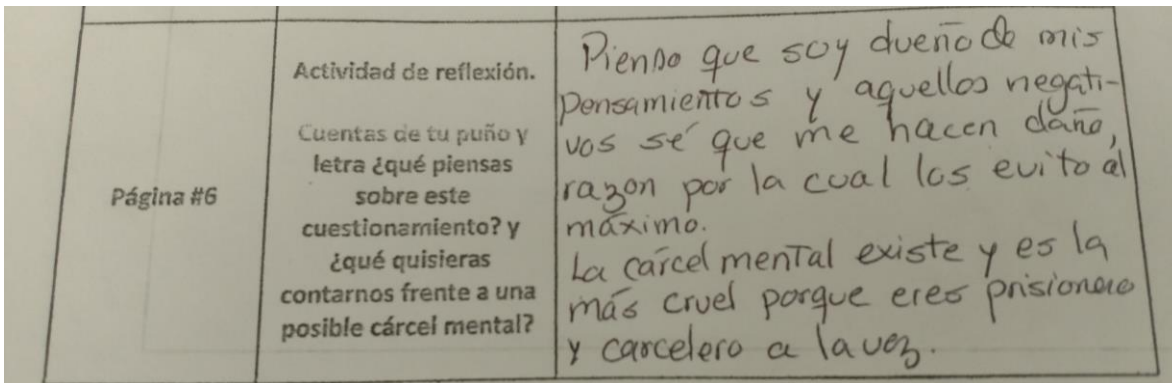 Página #6
Actividad de reflexión.
Cuentas de tu puño y
letra ¿qué piensas
sobre este
cuestionamiento? y
¿qué quisieras
contarnos frente a una
posible cárcel mental?
Pienso que soy dueño de mis
pensamientos y aquellos negati-
vos sé que me hacen daño,
razon por la cual los evito al
máximo.
La cárcel mental existe y es la
más cruel porque eres prisionero
y carcelero a la vez.